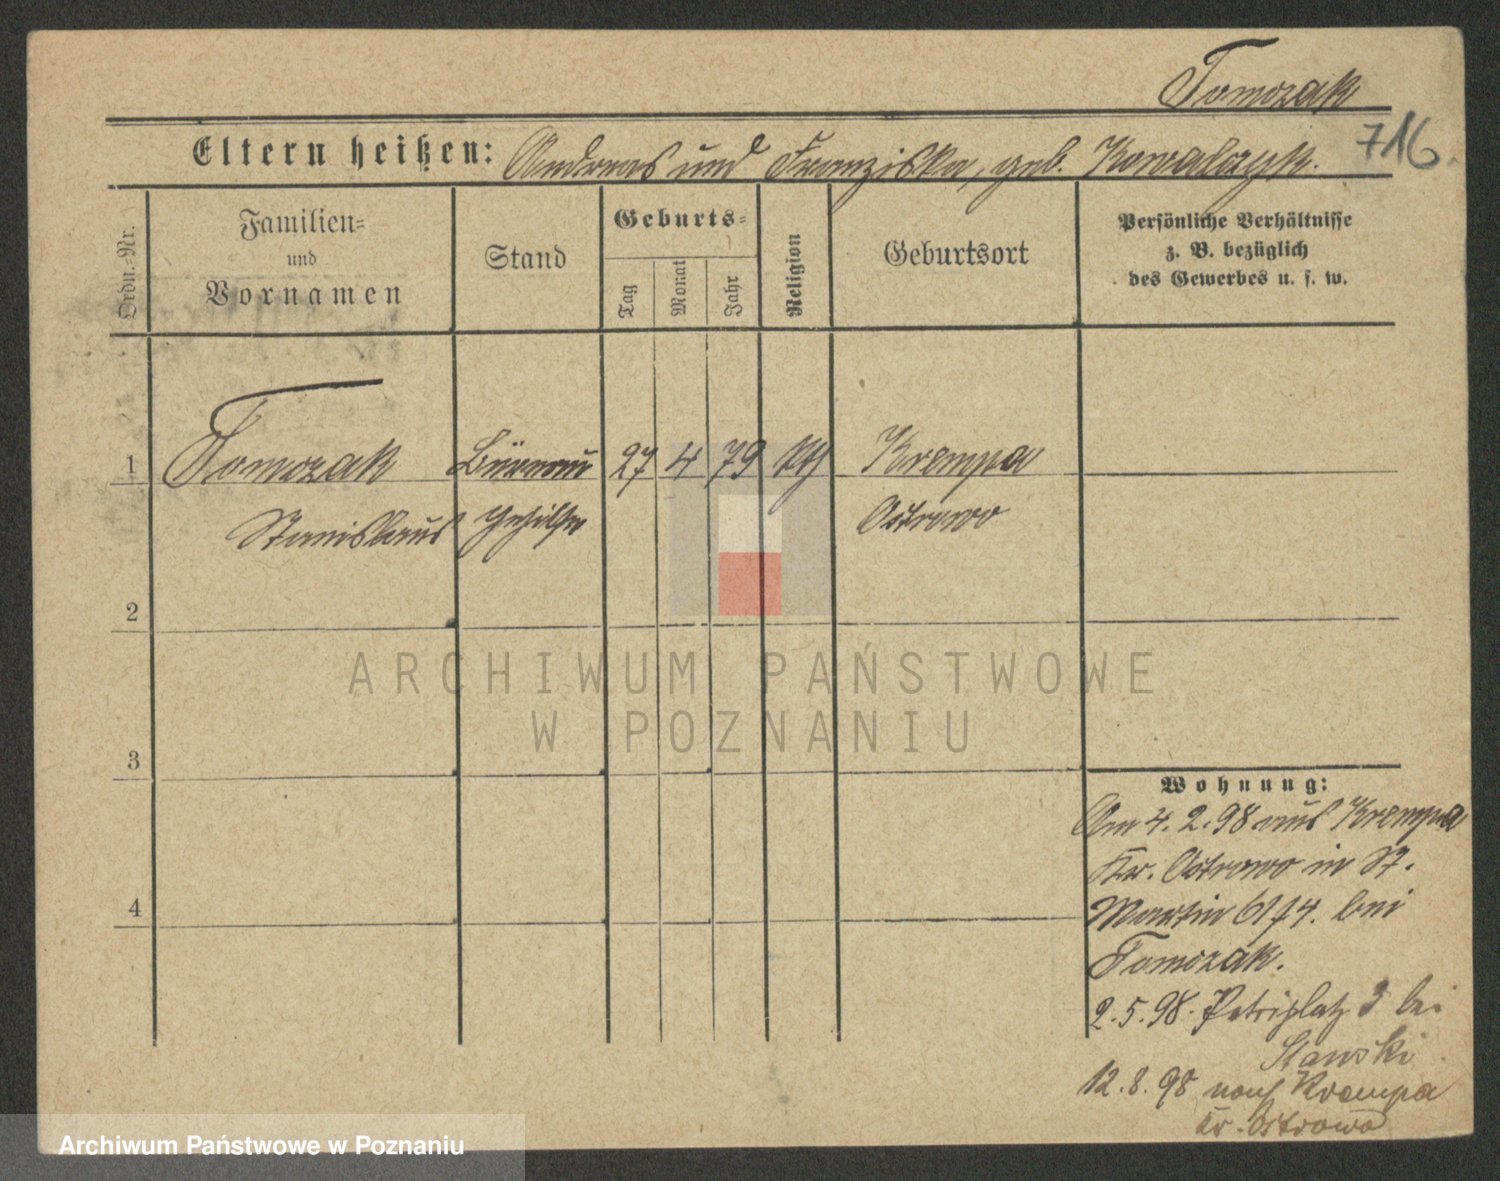 Tomczak
716
Eltern heißen: Andreas und Franziska, geb. Kowalczyk.
Ordn.-Nr.
Familien-
und
Vornamen
Stand
Geburts-
Tag
Monat
Jahr
Religion
Geburtsort
Persönliche Verhältnisse
z. B. bezüglich
des Gewerbes u. s. w.
1 Tomczak Büreau 27 4 79 kth Krempa
Stanislaus gehilfe Ostrowo
2
ARCHIWUM PAŃSTWOWE
W POZNANIU
3
Wohnung:
Am 4.2.98 aus Krempa
Kr. Ostrowo in St.
4
Martin bei
Tomczak.
2.5.98. Petriplatz 3 bei
Slawski
12.8.98 nach Krempa
Kr. Ostrowo
Archiwum Państwowe w Poznaniu